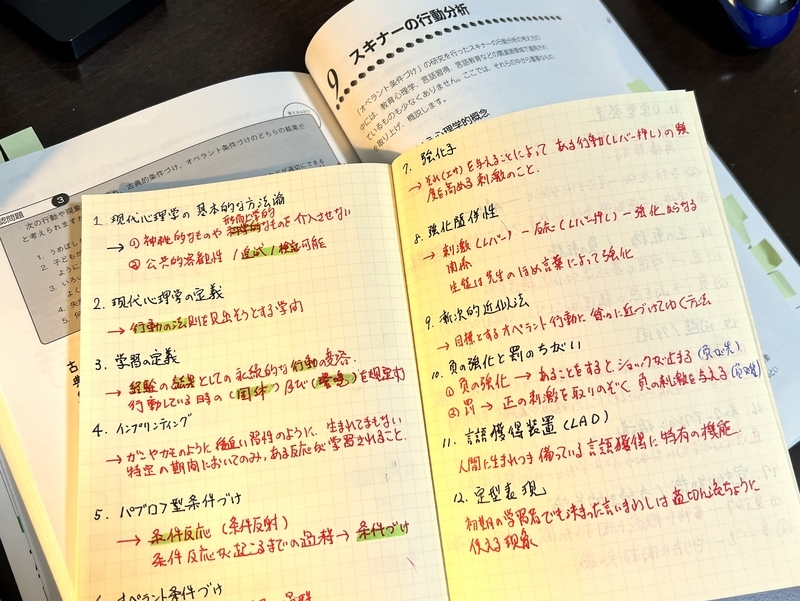 9. スキナーの行動分析
「オペラント条件づけ」の研究を行ったスキナーの行動分析の考え方の
中には、教育心理学、言語習得、言語教育などの関連諸領域で適用され
ているものも少なくありません。ここでは、それらの中から重要なもの
を取り上げ、概説します。
心理学的概念
古典的条件づけ、オペラント条件づけのどちらの結果だ
3
認問題
次の行動や現象
と考えられますか
1. うめぼし
2. 子どもが
ように
3. いろい
よく
4. 失
5. 何
1. 現代心理学の基本的な方法論
形而上学的
→ ① 神秘的なものや なものを介入させない
② 公共的客観性 / 追試 / 検証可能
2. 現代心理学の定義
→ 行動の法則を見出そうとする学問
3. 学習の定義
→ 経験の結果としての永続的な行動の変容.
行動している時の(固体)及び( )を規定する
4. インプリンティング
→ がこやかものように 後追い習性のように、生まれてまもない
特定の期間においてのみ、ある反応が学習されること.
5. パブロフ型条件づけ
→ 条件反応 (条件反射)
条件反応が起こるまでの過程 → 条件づけ
オペラント条件づけ
7. 強化子
→ それ(エサ)を与えることによって ある行動(レバー押し)の頻
度を高める刺激のこと.
8. 強化随伴性
→ 刺激(レバー) - 反応(レバー押し) - 強化 からなる
関係
生徒は先生のほめ言葉によって強化
9. 漸次的近似法
→ 目標とするオペラント行動に 徐々に近づけてゆく方法
10. 負の強化と罰のちがい
① 負の強化 → あることをするとショックが止まる
② 罰 → 正の刺激を取りのぞく 負の刺激を与える
11. 言語獲得装置 (LAD)
人間に生まれつき備っている言語獲得に特有の機能
12. 定型表現
初期の学習者でも決まった言いまわしは適切に流ちょうに
使える現象